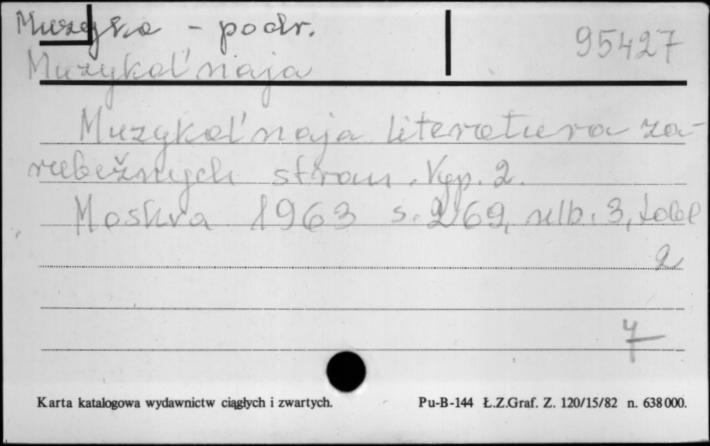 Muzyka - podr.
95427
Muzykal'naja
Muzykal'naja literatura za-
rubežnych stran. Vyp. 2.
Moskva 1963 s. 269, nlb. 3, tabl
2
7
Karta katalogowa wydawnictw ciągłych i zwartych.
Pu-B-144 Ł.Z.Graf. Z. 120/15/82 n. 638000.